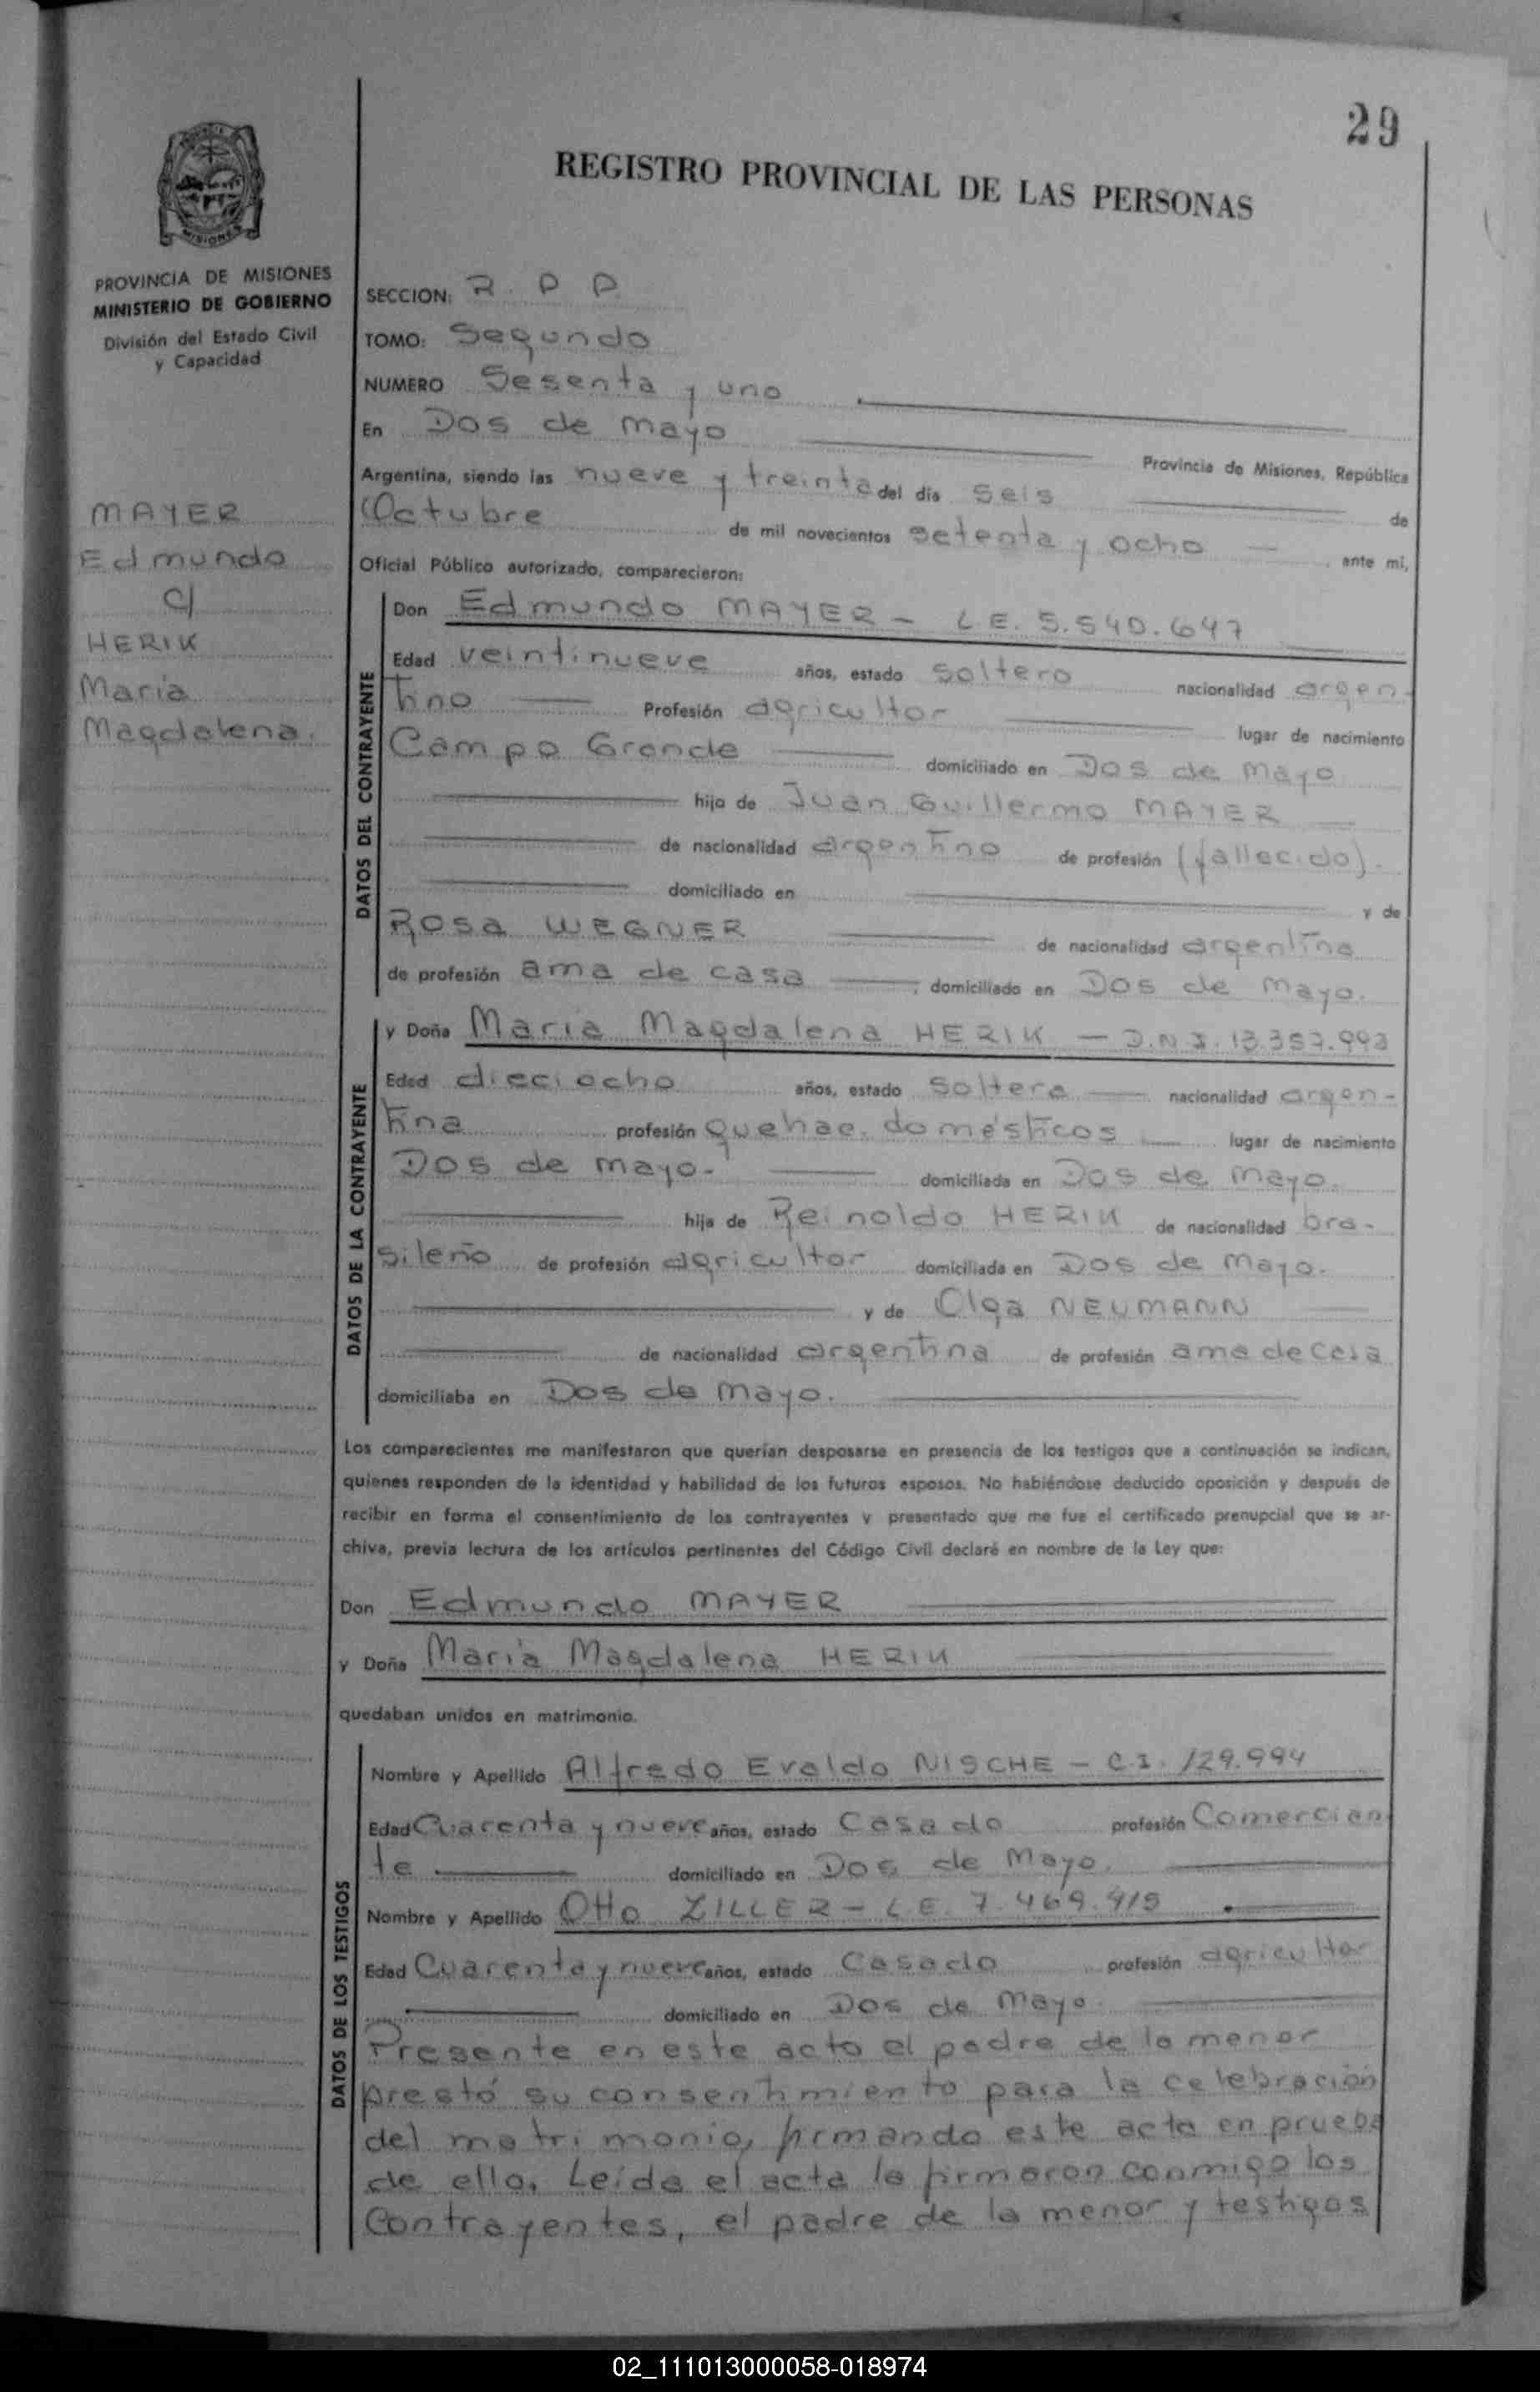 29
REGISTRO PROVINCIAL DE LAS PERSONAS
MISIONES
PROVINCIA DE MISIONES
MINISTERIO DE GOBIERNO
División del Estado Civil
y Capacidad
MAYER
Edmundo
c/
HERIK
María
Magdalena.
SECCION: R. P P
TOMO: Segundo
NUMERO Sesenta y uno
En Dos de mayo Provincia de Misiones, República
Argentina, siendo las nueve y treinta del día seis de
Octubre de mil novecientos setenta y ocho — ante mi,
Oficial Público autorizado, comparecieron:
DATOS DEL CONTRAYENTE
Don Edmundo MAYER - L.E. 5.540.647
Edad veintinueve años, estado soltero nacionalidad argen-
tino — Profesión agricultor lugar de nacimiento
Campo Grande — domiciliado en Dos de mayo
hijo de Juan Guillermo MAYER
de nacionalidad argentino de profesión (fallecido).
domiciliado en y de
Rosa WEGNER de nacionalidad argentina
de profesión ama de casa domiciliado en Dos de mayo.
DATOS DE LA CONTRAYENTE
y Doña María Magdalena HERIK — D.N.I. 13.357.993
Edad dieciocho años, estado soltera nacionalidad argen-
tina profesión quehac. domésticos lugar de nacimiento
Dos de mayo. domiciliada en Dos de mayo.
hija de Reinoldo HERIK de nacionalidad bra-
sileño de profesión agricultor domiciliada en Dos de mayo.
y de Olga NEUMANN
de nacionalidad argentina de profesión ama de casa
domiciliaba en Dos de mayo.
Los comparecientes me manifestaron que querían desposarse en presencia de los testigos que a continuación se indican,
quienes responden de la identidad y habilidad de los futuros esposos. No habiéndose deducido oposición y después de
recibir en forma el consentimiento de los contrayentes y presentado que me fue el certificado prenupcial que se ar-
chiva, previa lectura de los artículos pertinentes del Código Civil declaré en nombre de la Ley que:
Don Edmundo MAYER
y Doña María Magdalena HERIK
quedaban unidos en matrimonio.
DATOS DE LOS TESTIGOS
Nombre y Apellido Alfredo Evaldo NISCHE - C.I. 129.994
Edad Cuarenta y nueve años, estado Casado profesión Comercian
te domiciliado en Dos de Mayo.
Nombre y Apellido Otto ZILLER - L.E. 7.469.415
Edad Cuarenta y nueve años, estado Casado profesión agricultor
domiciliado en Dos de Mayo.
Presente en este acto el padre de la menor
prestó su consentimiento para la celebración
del matrimonio, firmando este acta en prueba
de ello. Leída el acta la firmaron conmigo los
Contrayentes, el padre de la menor y testigos
02_111013000058-018974